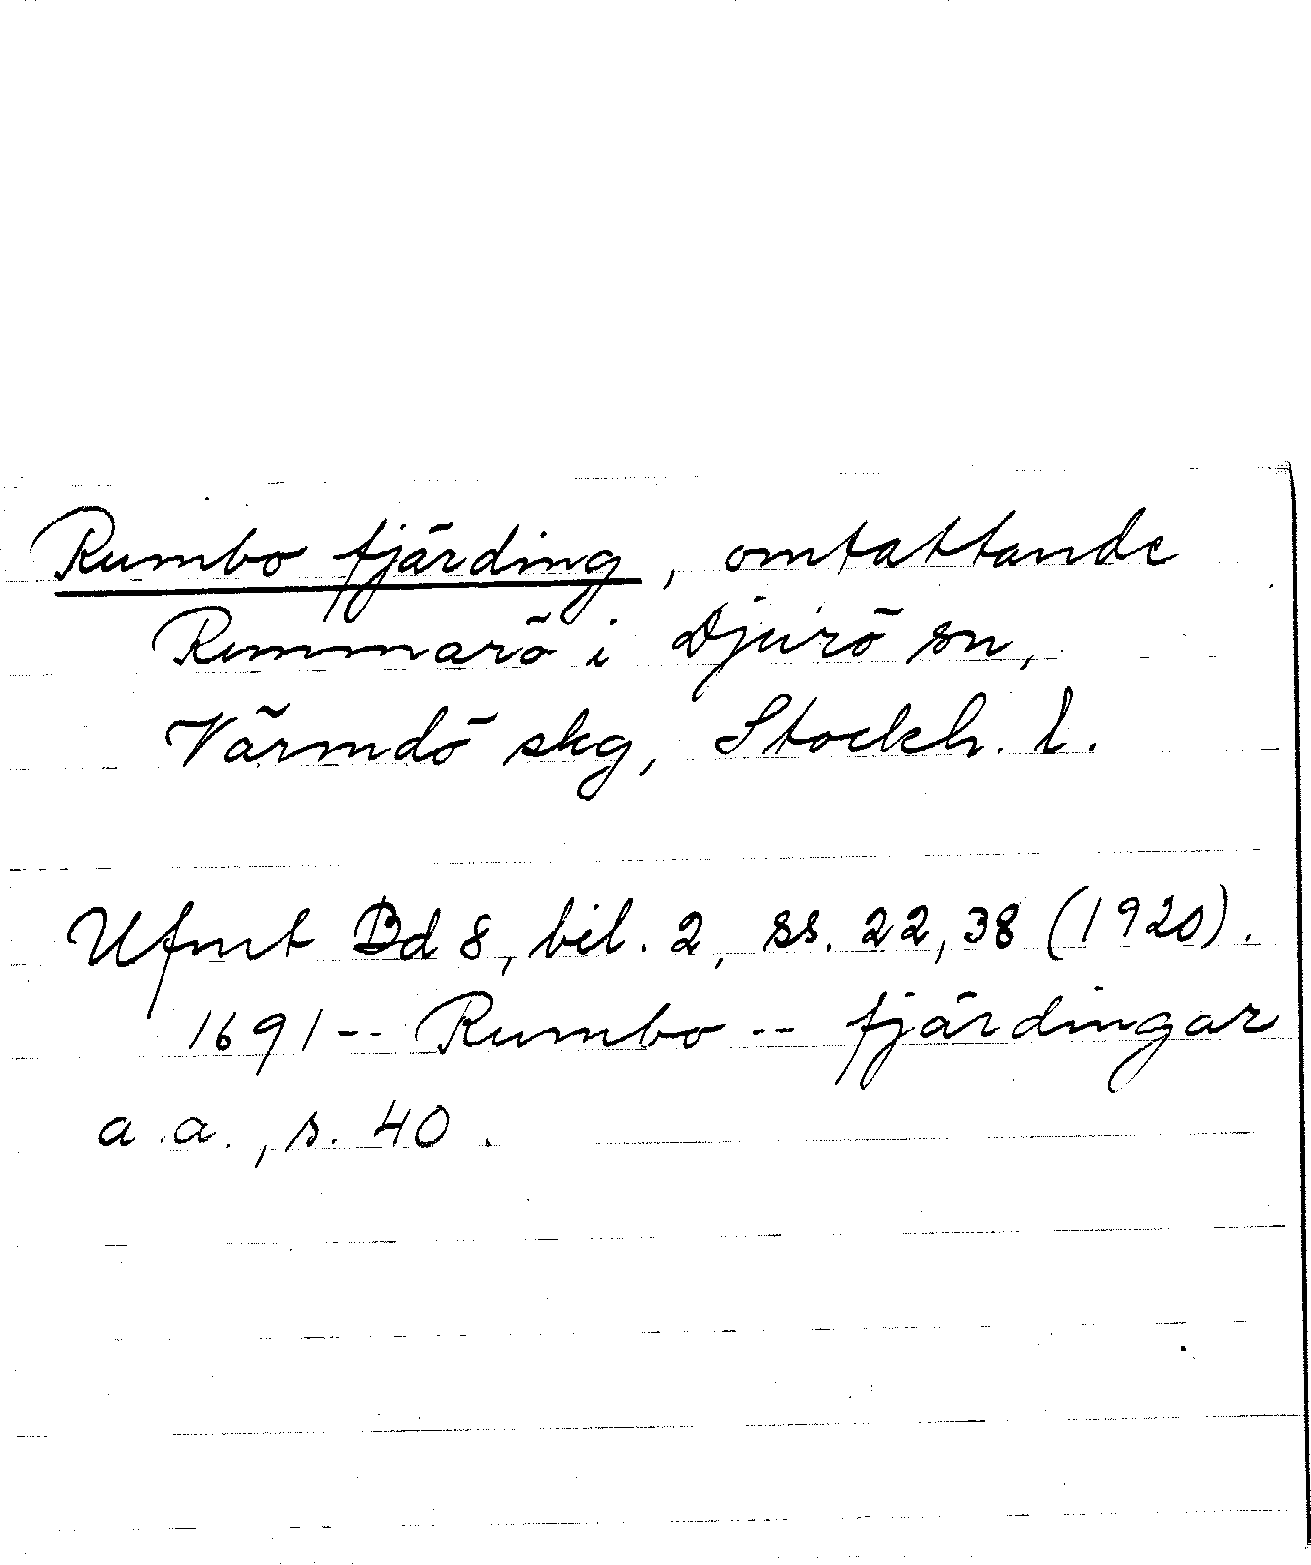 Rumbo fjärding, omfattande
Rummarö i Djurö sn,
Värmdö skg, Stockh. l.
Ufmt Bd 8, bil. 2, ss. 22, 38 (1920).
1691 -- Rumbo -- fjärdingar
a.a., s. 40.